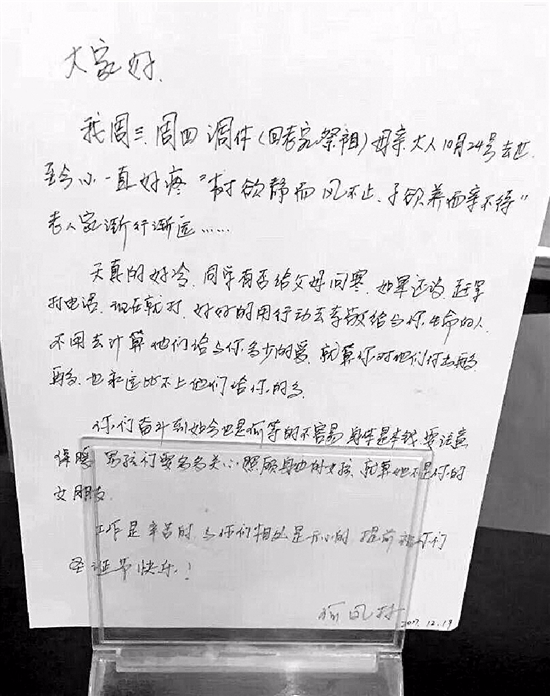 大家好.
我周三、周四调休(回老家祭祖)母亲大人10月24号去世.
至今心一直好疼"树欲静而风不止.子欲养而亲不待"
老人家渐行渐远……
天真的好冷.同学有否给父母问寒.如果还没 赶早
打电话.现在就打.好好的用行动去孝敬给与你生命的人.
不用去计算他们给与你多少的爱.就算你对他们付出再多
再多.也永远比不上他们给你的多
你们奋斗到如今也是何等的不容易 身体是本钱 要注意
保暖 男孩们要多多关心照顾身边的女孩.就算她不是你的
女朋友.
工作是辛苦的 与你们相处是开心的 提前祝你们
圣诞节快乐!
2017.12.19